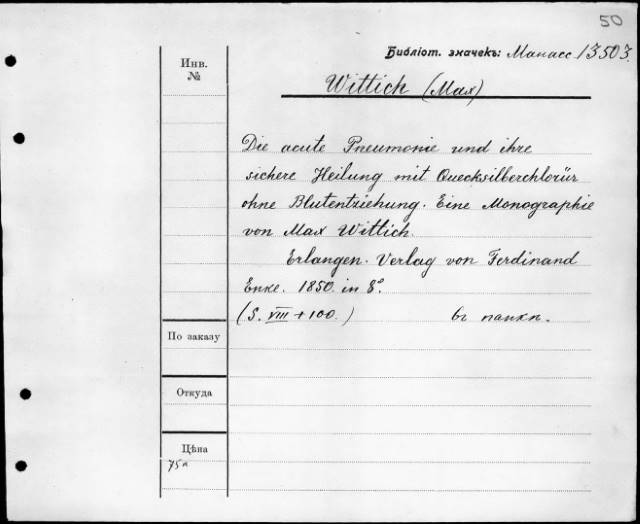 50
Библіот. значекъ: Манасс. 13503.
Инв.
№
Wittich (Max)
Die acute Pneumonie und ihre
sichere Heilung mit Quecksilberchlorür
ohne Blutentziehung. Eine Monographie
von Max Wittich.
Erlangen. Verlag von Ferdinand
Enke. 1850. in 8°.
(S. VIII + 100.) въ папкѣ.
По заказу
Откуда
Цѣна
75